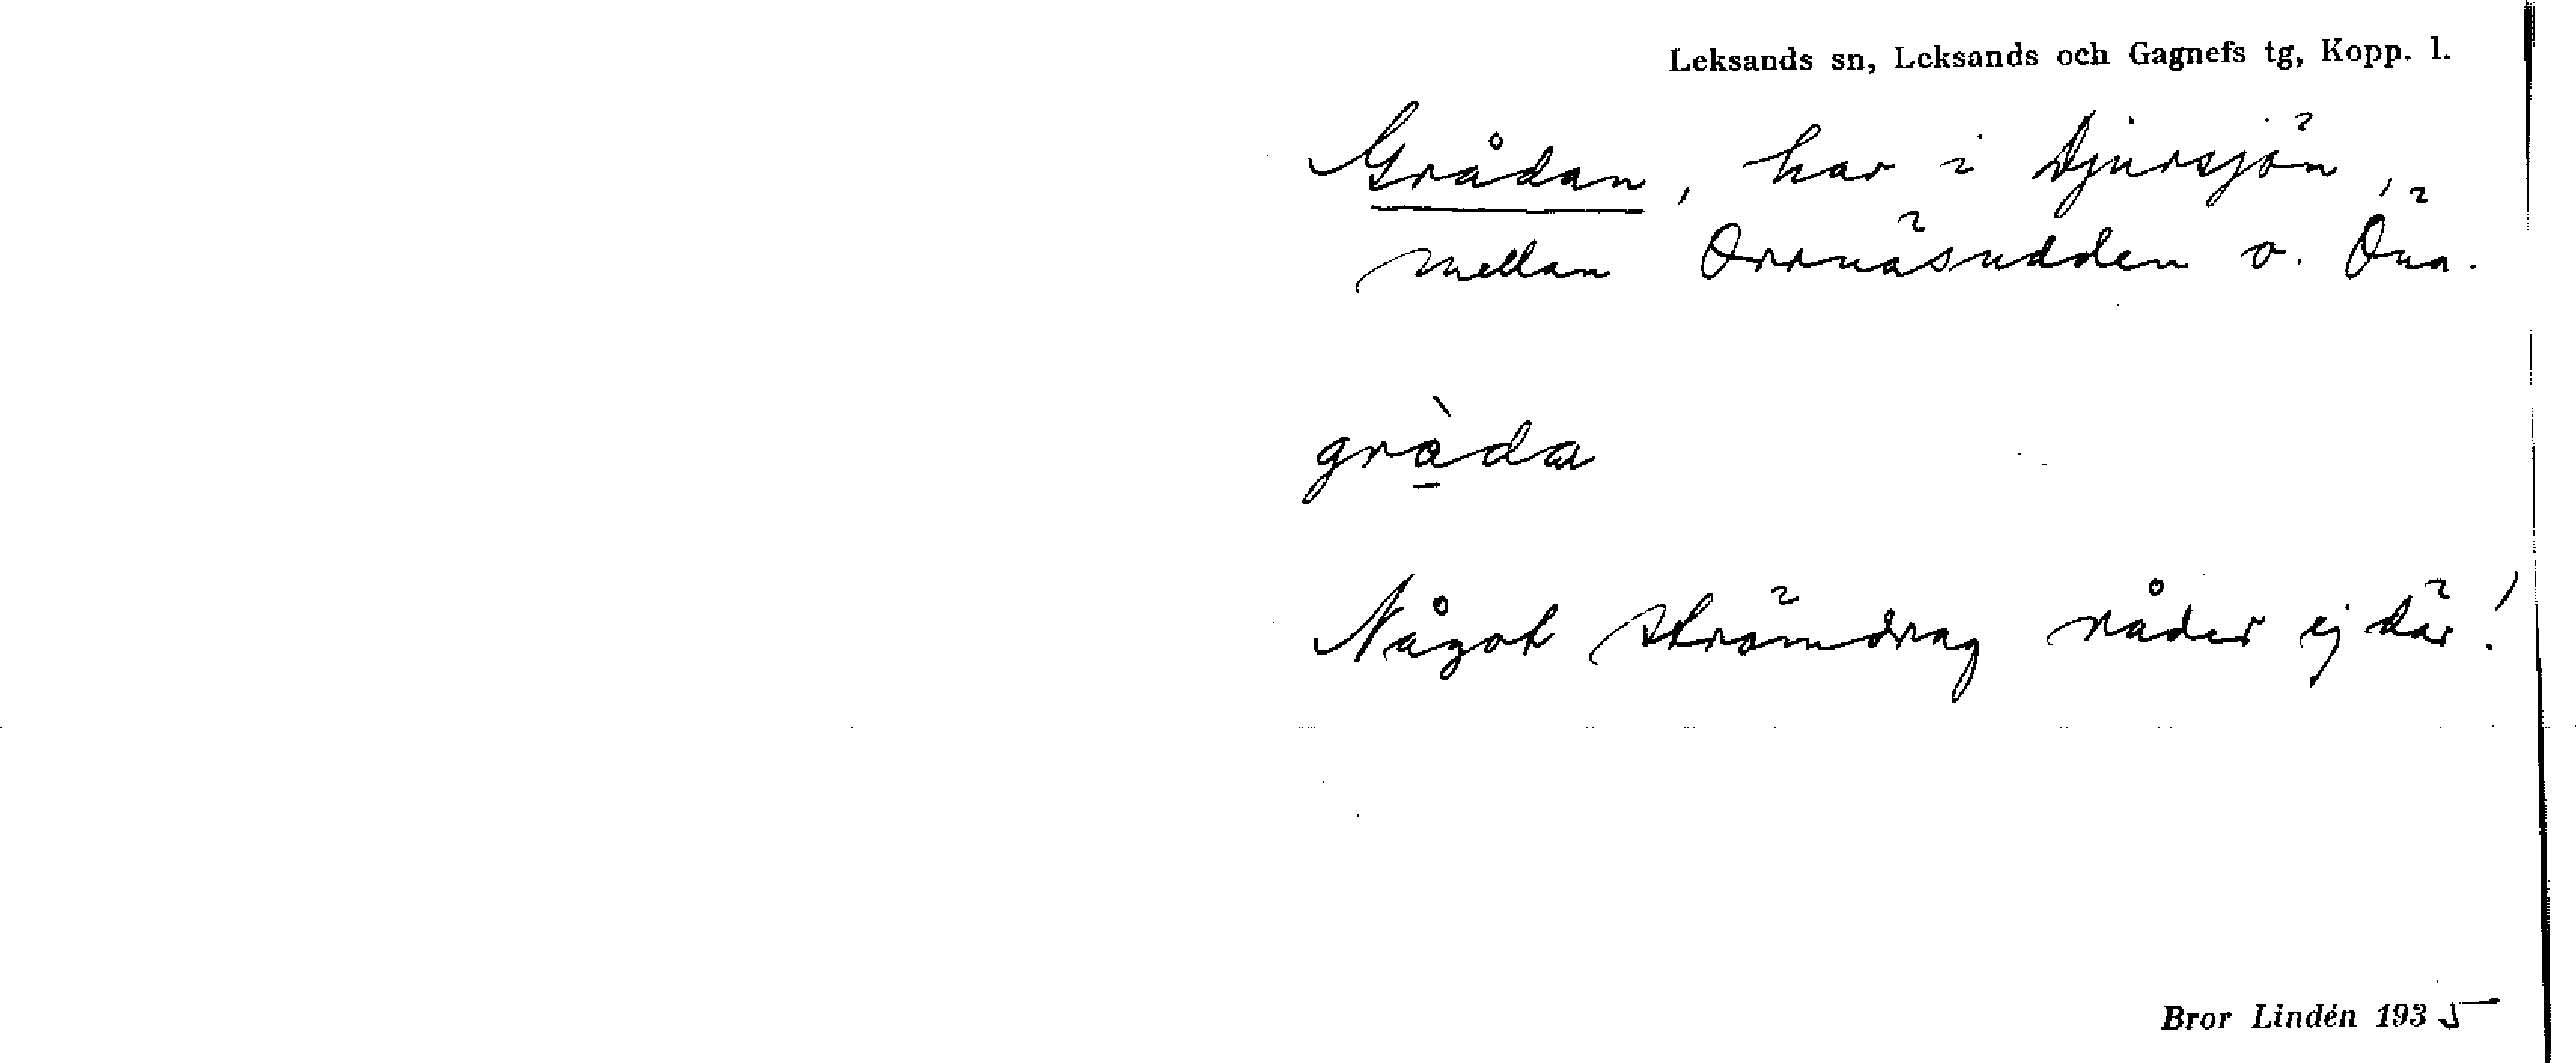 Leksands sn, Leksands och Gagnefs tg, Kopp. l.
Grådan, har i Djursjön,
mellan Orrnäsudden o. Öna.
gràda
Något strömdrag råder ej där!
Bror Lindén 1935